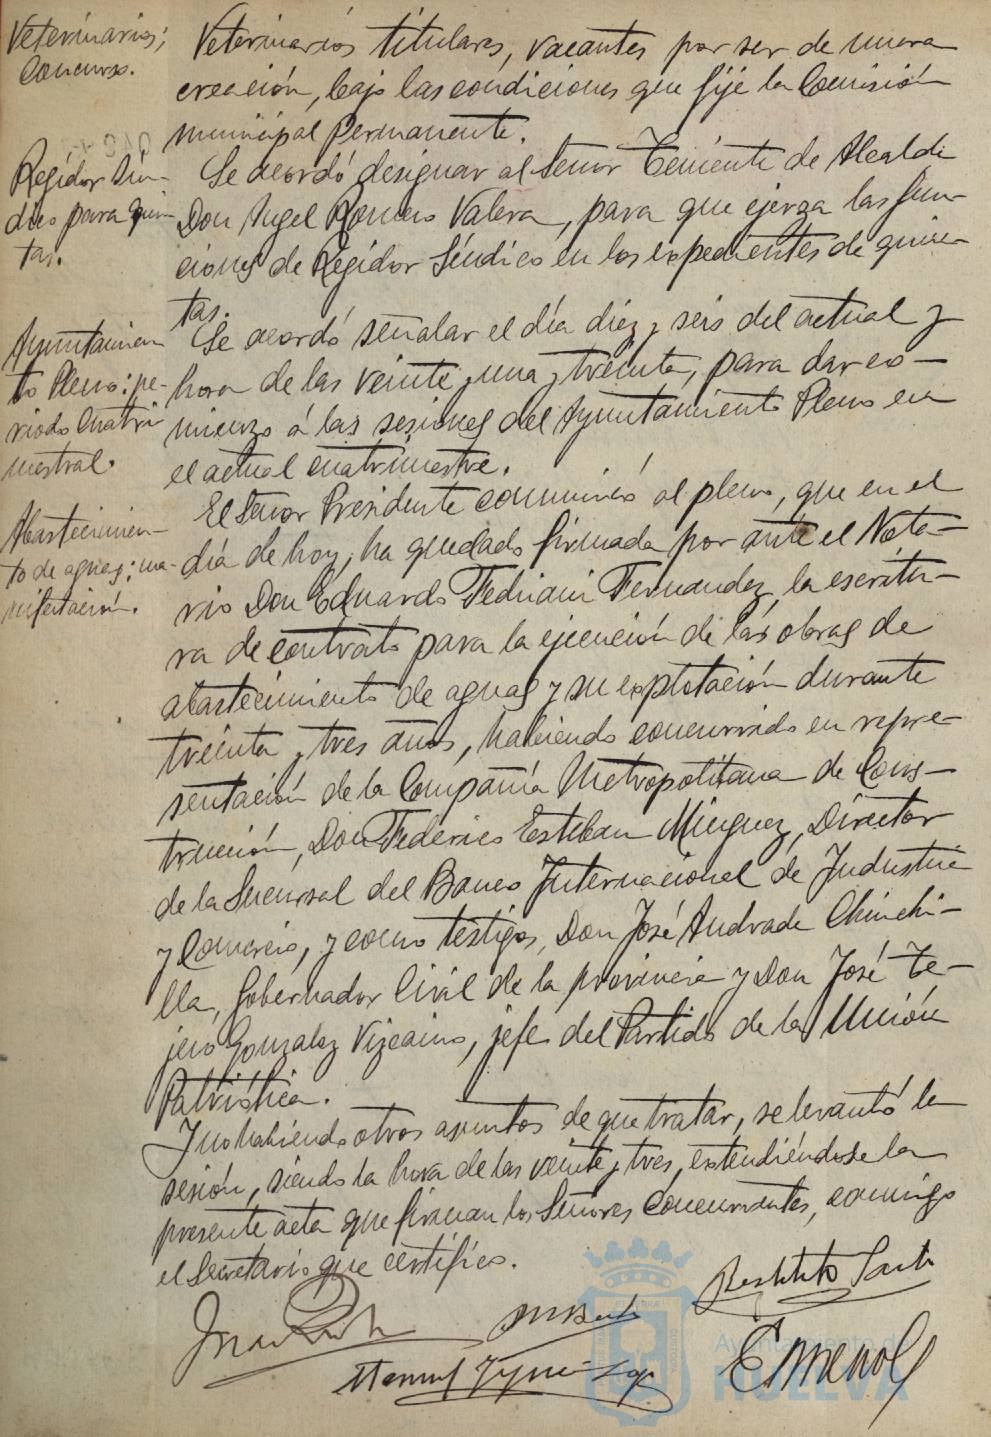 Veterinarios;
Concurso.
Veterinarios titulares, vacantes por ser de nueva
creación, bajo las condiciones que fije la Comisión
municipal permanente.
Regidor Sín-
dico para quin-
tas.
Se acordó designar al Señor Teniente de Alcalde
Don Angel Romero Valera, para que ejerza las fun-
ciones de Regidor Síndico en los expedientes de quin-
tas.
Ayuntamien-
to Pleno: pe-
riodo Cuatri
mestral.
Se acordó señalar el día diez y seis del actual y
hora de las veinte y una y treinta, para dar co-
mienzo á las sesiones del Ayuntamiento Pleno en
el actual cuatrimestre.
Abastecimien-
to de aguas; ma-
nifestación.
El Señor Presidente comunicó al pleno, que en el
día de hoy, ha quedado firmada por ante el Nota-
rio Don Eduardo Fedriani Fernandez, la escritu-
ra de contrato para la ejecución de las obras de
abastecimiento de aguas y su explotación durante
treinta y tres años, habiendo concurrido en repre-
sentación de la Compañía Metropolitana de Cons-
trucción, Don Federico Esteban Minguez, Director
de la Sucursal del Banco Internacional de Industria
y Comercio, y como testigos, Don José Andrade Chinchi-
lla, Gobernador Civil de la provincia y Don José Te-
jero Gonzalez Vizcaino, jefe del Partido de la Unión
Patriótica.
Y no habiendo otros asuntos de que tratar, se levantó la
sesión, siendo la hora de las veinte y tres, extendiéndose la
presente acta que firman los Señores Concurrentes, conmigo
el Secretario que certifico.
Ayuntamiento de
HUELVA